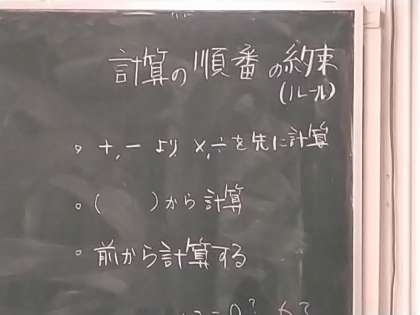 計算の順番の約束
(ルール)
。+,-より×,÷を先に計算
。( )から計算
。前から計算する